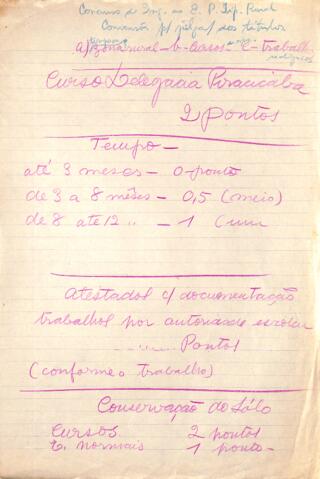 Concurso de Ing. ao E. P. Tip. Rural
p/ julgar dos títulos
a/ zona rural - b - Cursos - c - trabalh
Curso Delegacia Piracicaba
2 Pontos
Tempo -
até 3 meses - 0 ponto
de 3 a 8 mêses - 0,5 (meio)
de 8 até 12 ,, - 1 (um
Atestados c/ documentação
trabalhos por autoridade escolar
........ Pontos
(conforme o trabalho)
Conservação do Sólo
Cursos 2 pontos
C. normais 1 ponto -